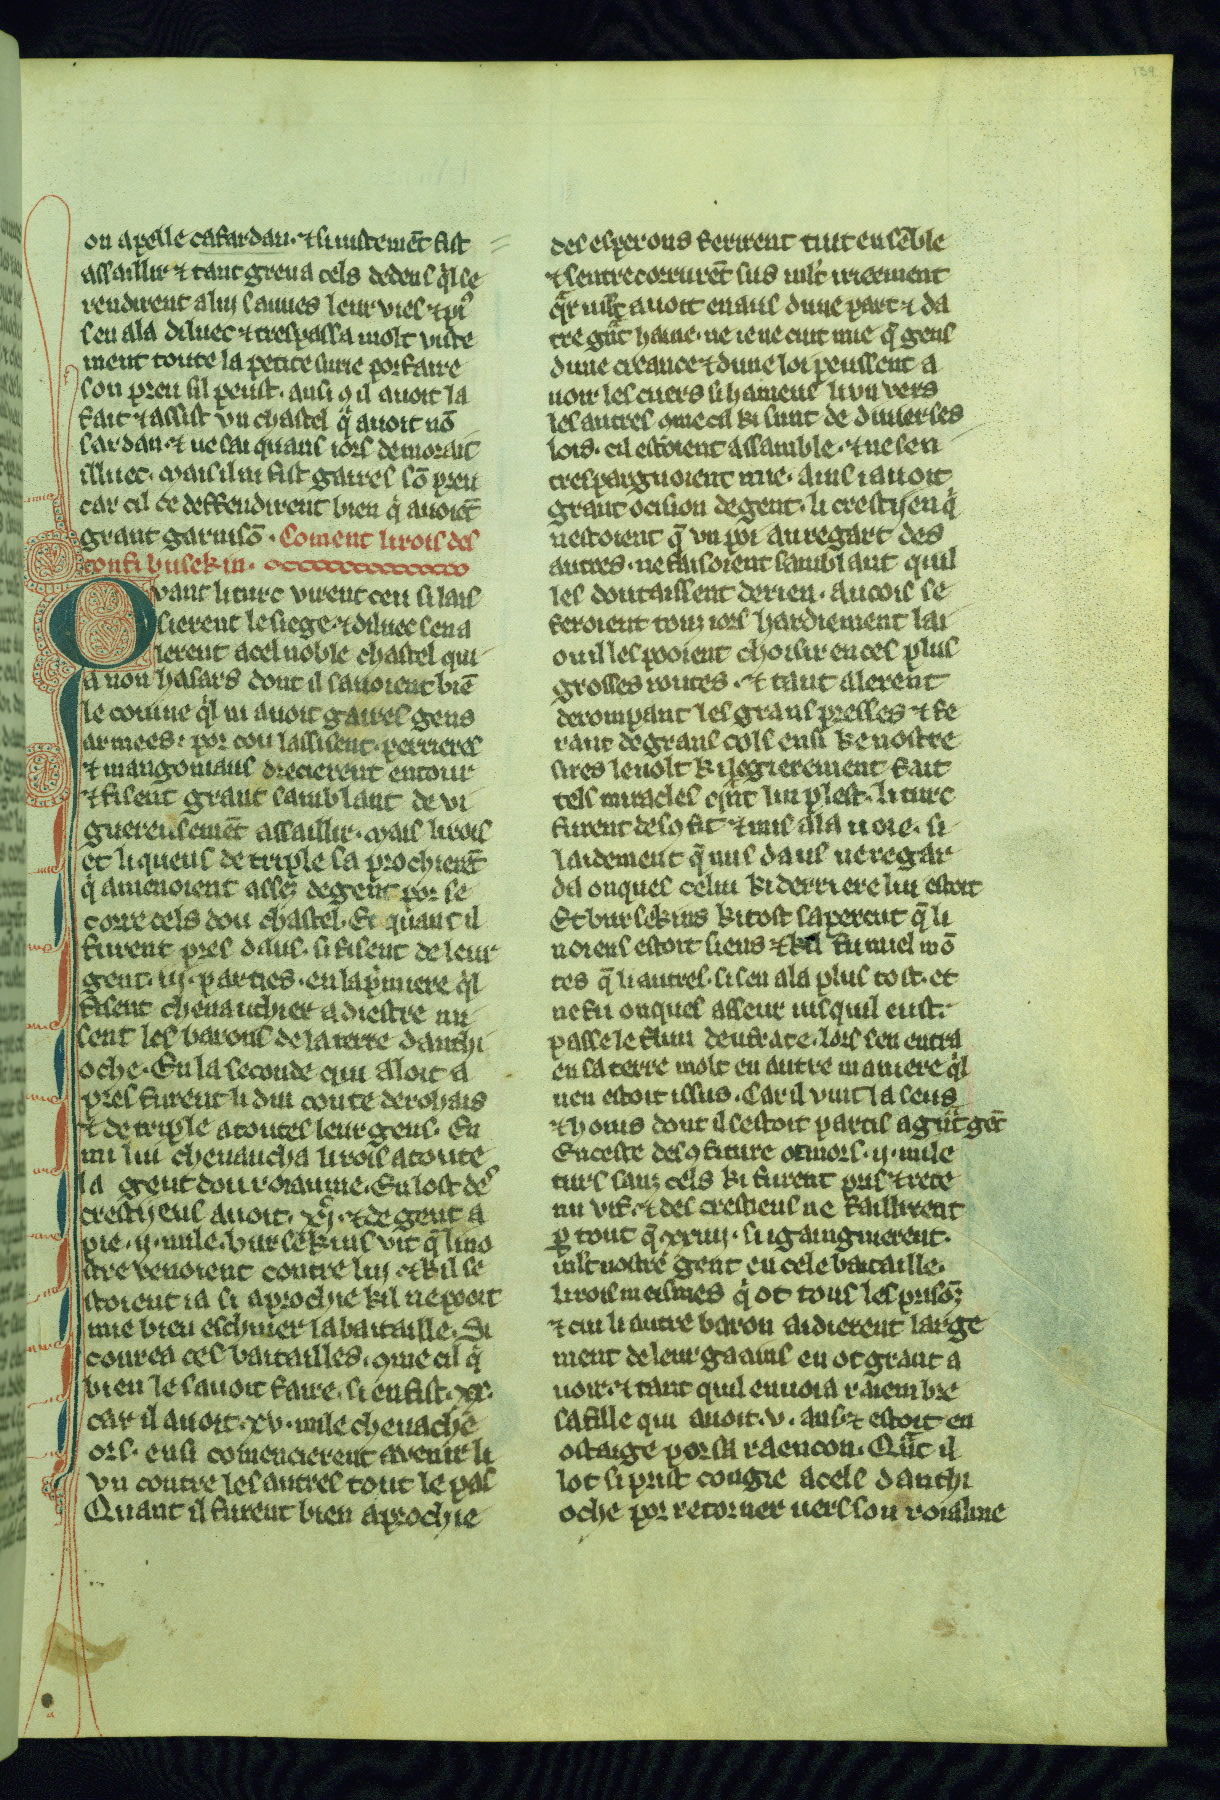 139
on apelle cafardan· ⁊ si uistemēt fist
assaillir ⁊ tant greua cels dedens q̄l se
rendirent a lui sauues leur vies ⁊ pͥs
sen ala diluec ⁊ trespassa molt viste
ment toute la petite surie por faire
son preu sil peust· ausi ꝯ il auoit la
fait ⁊ assist vn chastel qͥ auoit nō
sardan· ⁊ ne sai quans iors demorait
illuec· mais il ni fist gaires sō preu
car cil de deffendirent bien qͥ auoiēt
grant garnisō· Coment li rois des
confi busekin·
Qvant li turc virent ceu si lais
sierent le siege· ⁊ diluec sen a
ierent a cel noble chastel qui
a non hasars dont il sauoient biē
le couine q̄l ni auoit gaires gens
armees· por cou lassisent· perrieres
⁊ mangoniaus drecierent entour
⁊ fisent grant samblant de vi
guereusemēt assaillir· mais li rois
et li queus de triple sa prochierēt
qͥ amenoient assez de gent por se
corre cels dou chastel· Et quant il
furent pres daus· si fisent de leur
gent· iij· parties· en la pͥmiere q̄l
fisent cheuauchier a diestre mi
sent les barons de la terre danthi
oche· En la seconde qui aloit a
pres furent li dui conte de rohais
⁊ de triple a toutes leur gens· En
mi lui cheuaucha li rois a toute
la gent dou roiaume· En lost des
crestijens auoit· xjͨ· ⁊ de gent a
pie· ij· mile· bursekins vit q̄ li no
stre venoient contre lui· ⁊ kil se
stoient ia si aprochie kil ne pooit
mie bien eschiuer la bataille· Si
conrea ces bataillles· ꝯme cil qͥ
bien le sauoit faire· si en fist· xx·
car il auoit· xv· mile cheuache
ors· ensi comencierent a venir li
vn contre les autres tout le pas
Quant il furent bien aprochie
des esperons ferirent tuit ensēble
⁊ sentrecorrurēt sus mlt' irieement
qͣr mlt' auoit en aus dune part ⁊ da
tre gͣnt haine· ne ie ne cuit mie q̄ gens
dune creance ⁊ dune loi peussent a
uoir les cuers si haineus li vn vers
les autres ꝯme cil ki sunt de diuierses
lois· cil estoient assamble· ⁊ ne sen
tresparguoient mie· ains i auoit
grant ocision de gent· li crestijen qͥ
nestoient q̄ vn poi au regart des
autres· ne faisoient samblant quil
les doutaissent de rien· Ancois se
feroient touz iors hardiement lai
ou il les pooient choisir en ces plus
grosses routes· ⁊ tant alerent
derompant les grans presses ⁊ fe
rant de grans cols ensi ke nostre
sires le uolt ki legierement fait
tels miracles qͣnt lui plest· li turc
furent desꝯfit ⁊ mis a la uoie· si
laidement q̄ nus daus ne regar
da onques celui ki derriere lui estoit
Et bursekins ki tost sapercut q̄ li
noiens estoit siens ⁊ kil fu miel mō
tes q̄ li autres· si sen ala plus tost· et
ne fu onques asseur iusquil eust·
passe le flun deufrate· lors sen entra
en sa terre molt en autre maniere q̄l
nen estoit issus· Car il vint la sens
⁊ honis dont il sestoit partis a gͣnt gēt
En ceste desꝯfiture ot mors· ij· mile
turs sanz cels ki furent pris ⁊ rete
nu vif· ⁊ des crestiens ne faillirent
ꝑ tout q̄ xxiiij· si i gaingnierent·
mlt' nostre gent en cele bataille·
li rois meismes qͥ ot tous les prisōs
⁊ cui li autre baron aidierent large
ment de leur gaains en ot grant a
uoir· ⁊ tant quil enuoia raiembre
sa fille qui auoit· v· ans ⁊ estoit en
ostaige por sa raencon· Qͣnt il
lot si prist congie a cels danthi
oche por retorner uers son roialme